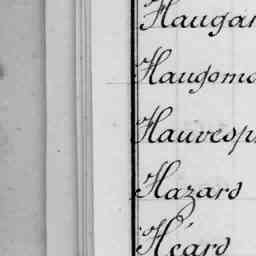 Haugar
Haugoma
Hauvesp
Hazard
Héard